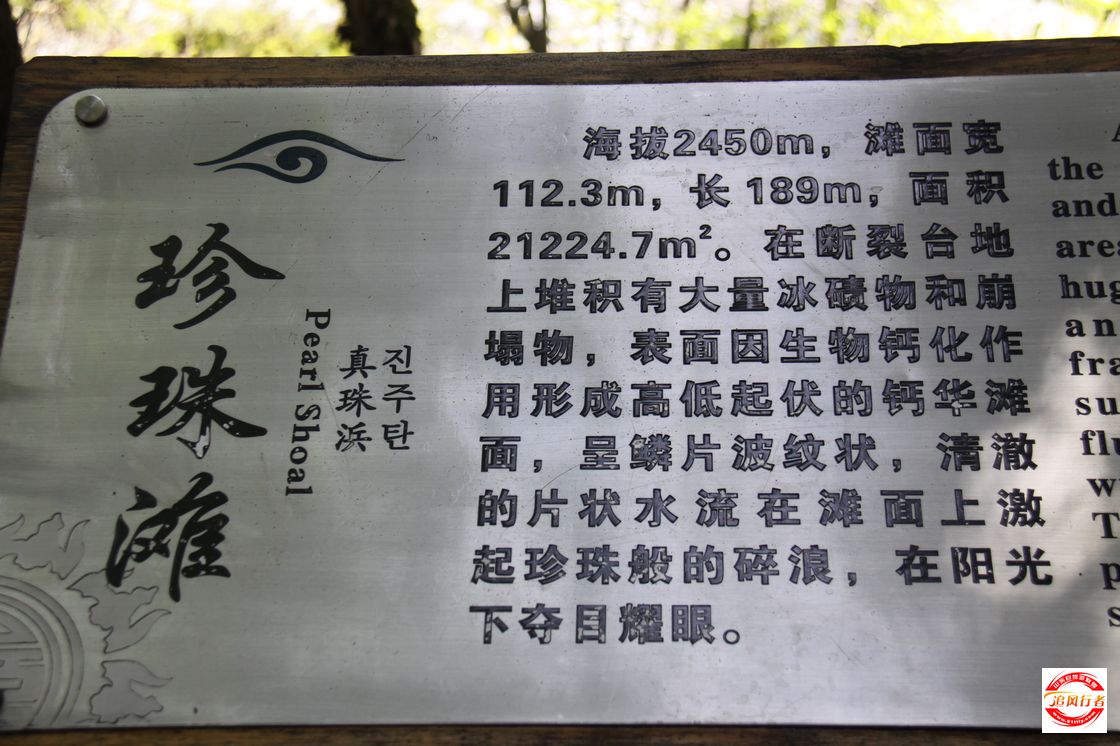 珍珠滩
Pearl Shoal
真珠浜
진주탄
海拔2450m，滩面宽
112.3m，长189m，面积
21224.7m²。在断裂台地
上堆积有大量冰碛物和崩
塌物，表面因生物钙化作
用形成高低起伏的钙华滩
面，呈鳞片波纹状，清澈
的片状水流在滩面上激
起珍珠般的碎浪，在阳光
下夺目耀眼。
the
and
area
hug
an
fra
su
flu
追风行者